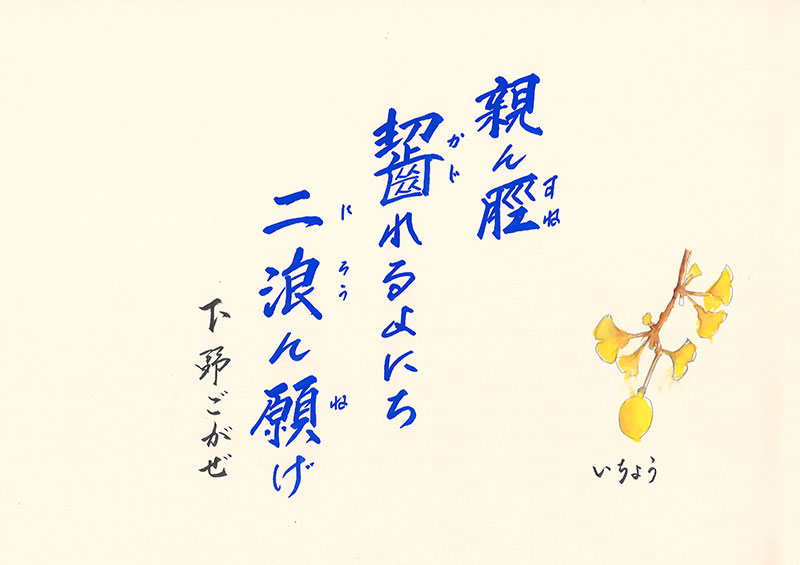 親ん脛
すね
齧れるよにち
かじ
二浪ん願げ
にろう ね
下野ごがぜ
いちょう